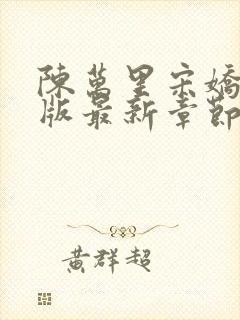 陳萬里宋嬌
版最新章節
黃群超